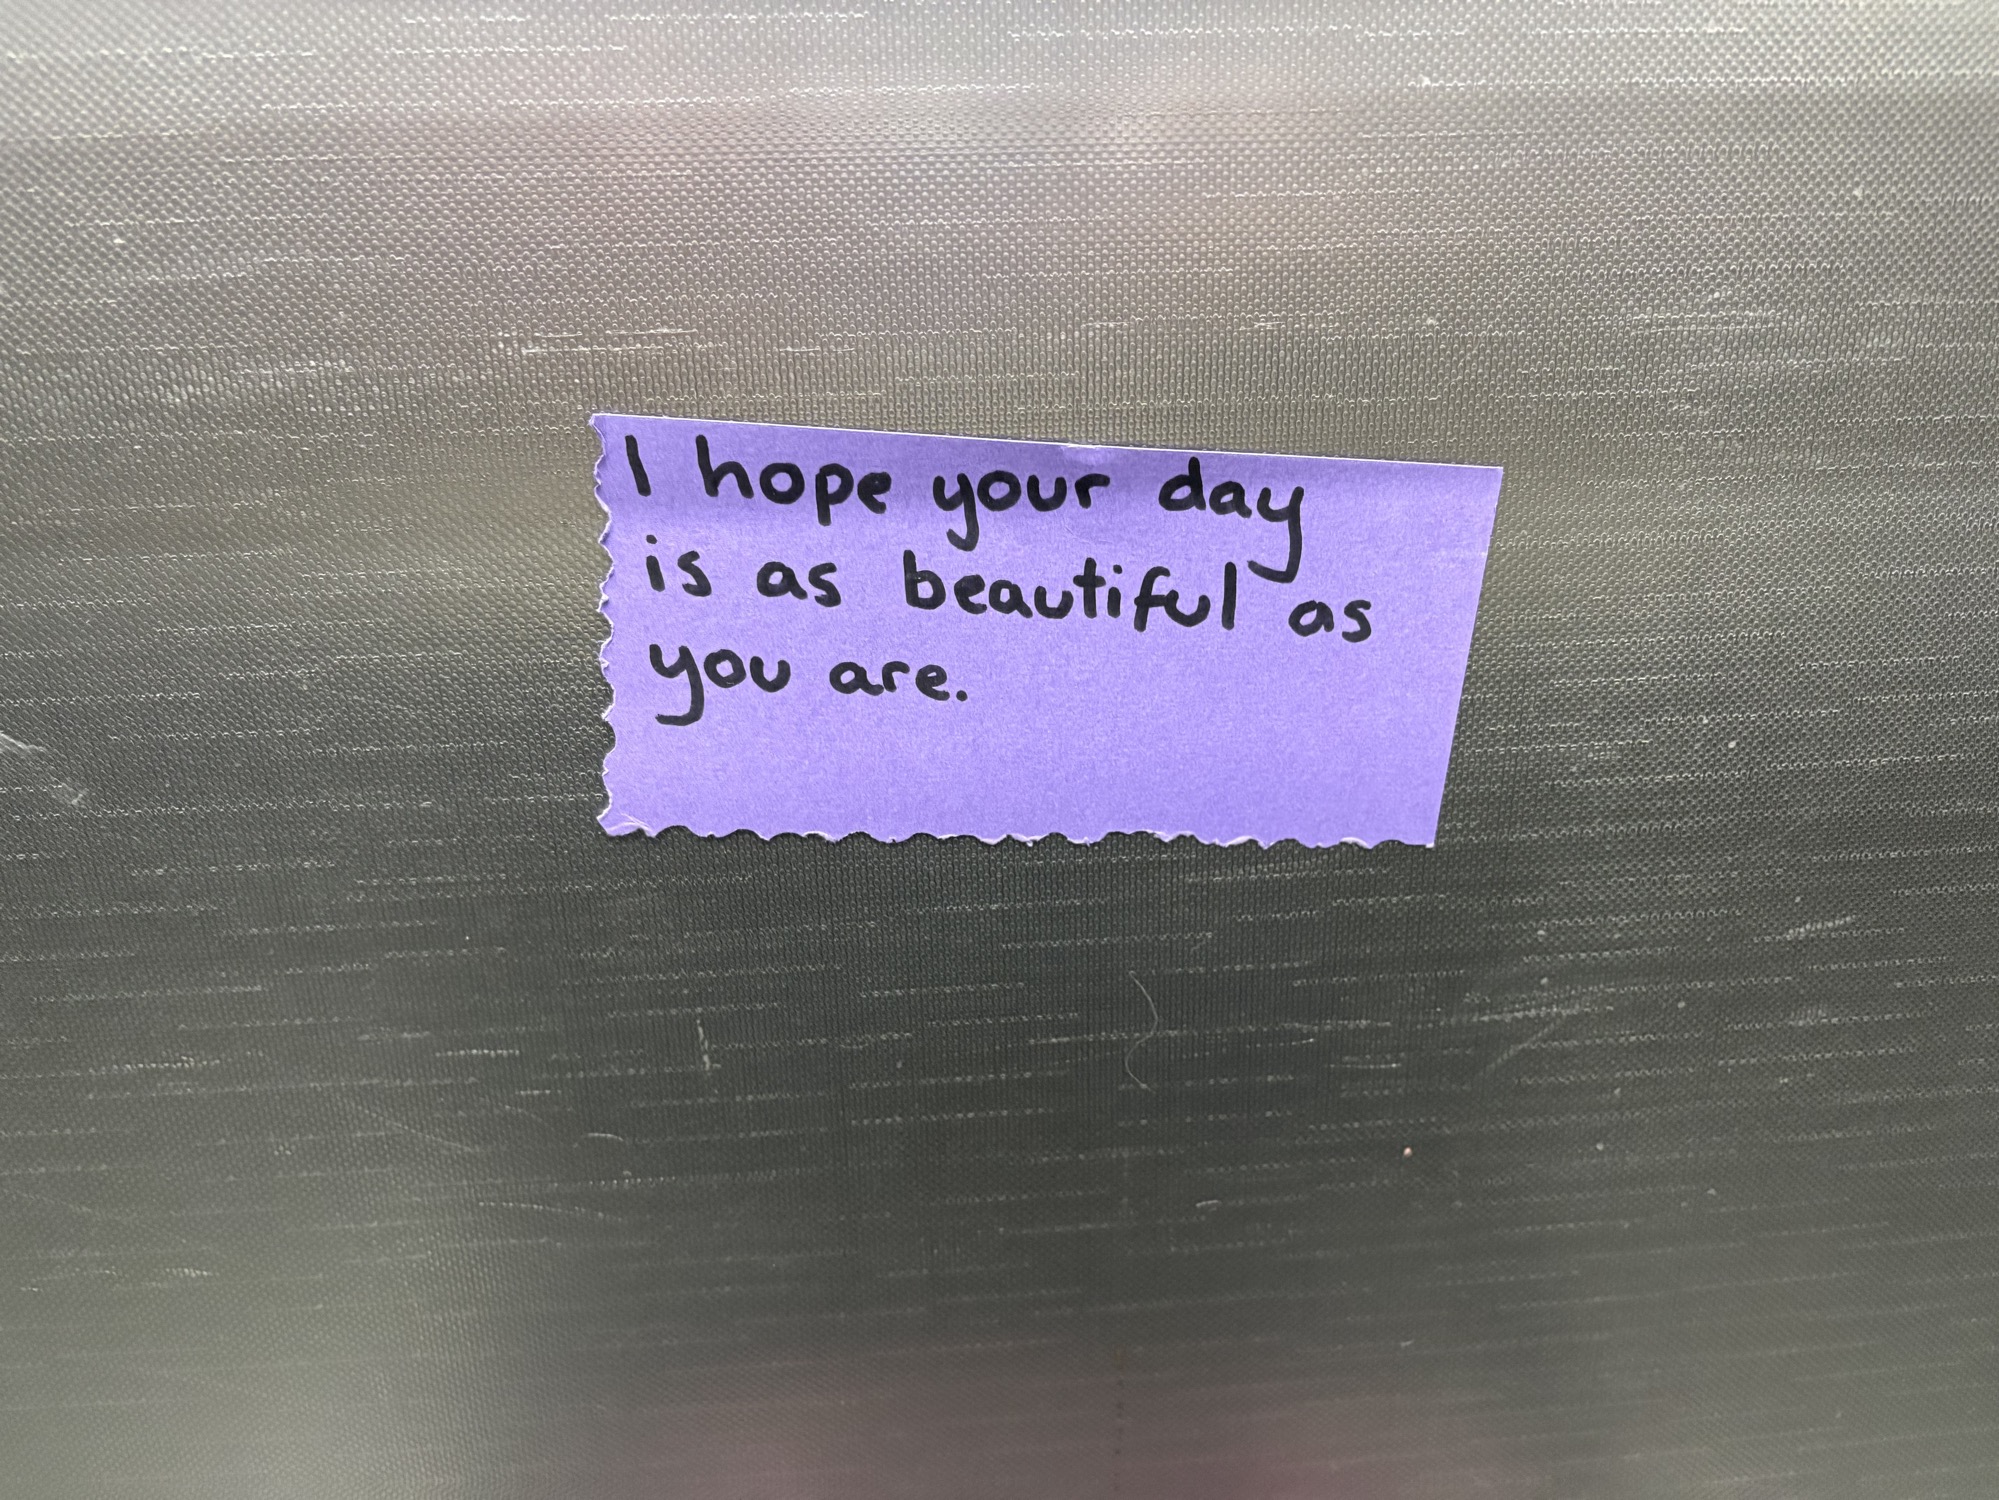 I hope your day
is as beautiful as
you are.